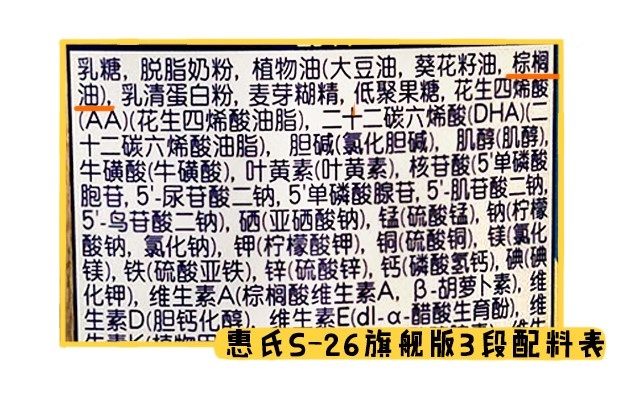 乳糖, 脱脂奶粉, 植物油(大豆油, 葵花籽油, 棕榈
油), 乳清蛋白粉, 麦芽糊精, 低聚果糖, 花生四烯酸
(AA)(花生四烯酸油脂), 二十二碳六烯酸(DHA)(二
十二碳六烯酸油脂), 胆碱(氯化胆碱), 肌醇(肌醇),
牛磺酸(牛磺酸), 叶黄素(叶黄素), 核苷酸(5'单磷酸
胞苷, 5'-尿苷酸二钠, 5'单磷酸腺苷, 5'-肌苷酸二钠,
5'-鸟苷酸二钠), 硒(亚硒酸钠), 锰(硫酸锰), 钠(柠檬
酸钠, 氯化钠), 钾(柠檬酸钾), 铜(硫酸铜), 镁(氯化
镁), 铁(硫酸亚铁), 锌(硫酸锌), 钙(磷酸氢钙), 碘(碘
化钾), 维生素A(棕榈酸维生素A, β-胡萝卜素), 维
生素D(胆钙化醇), 维生素E(dl-α-醋酸生育酚), 维
惠氏S-26旗舰版3段配料表